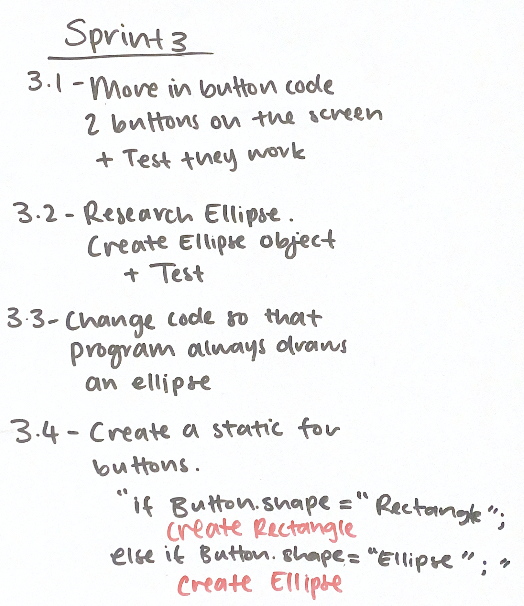 Sprint 3
3.1 - Move in button code
2 buttons on the screen
+ Test they work
3.2 - Research Ellipse.
Create Ellipse object
+ Test
3.3 - Change code so that
program always draws
an ellipse
3.4 - Create a static for
buttons.
"if Button.shape = "Rectangle";
create Rectangle
else if Button.shape = "Ellipse"; "
Create Ellipse